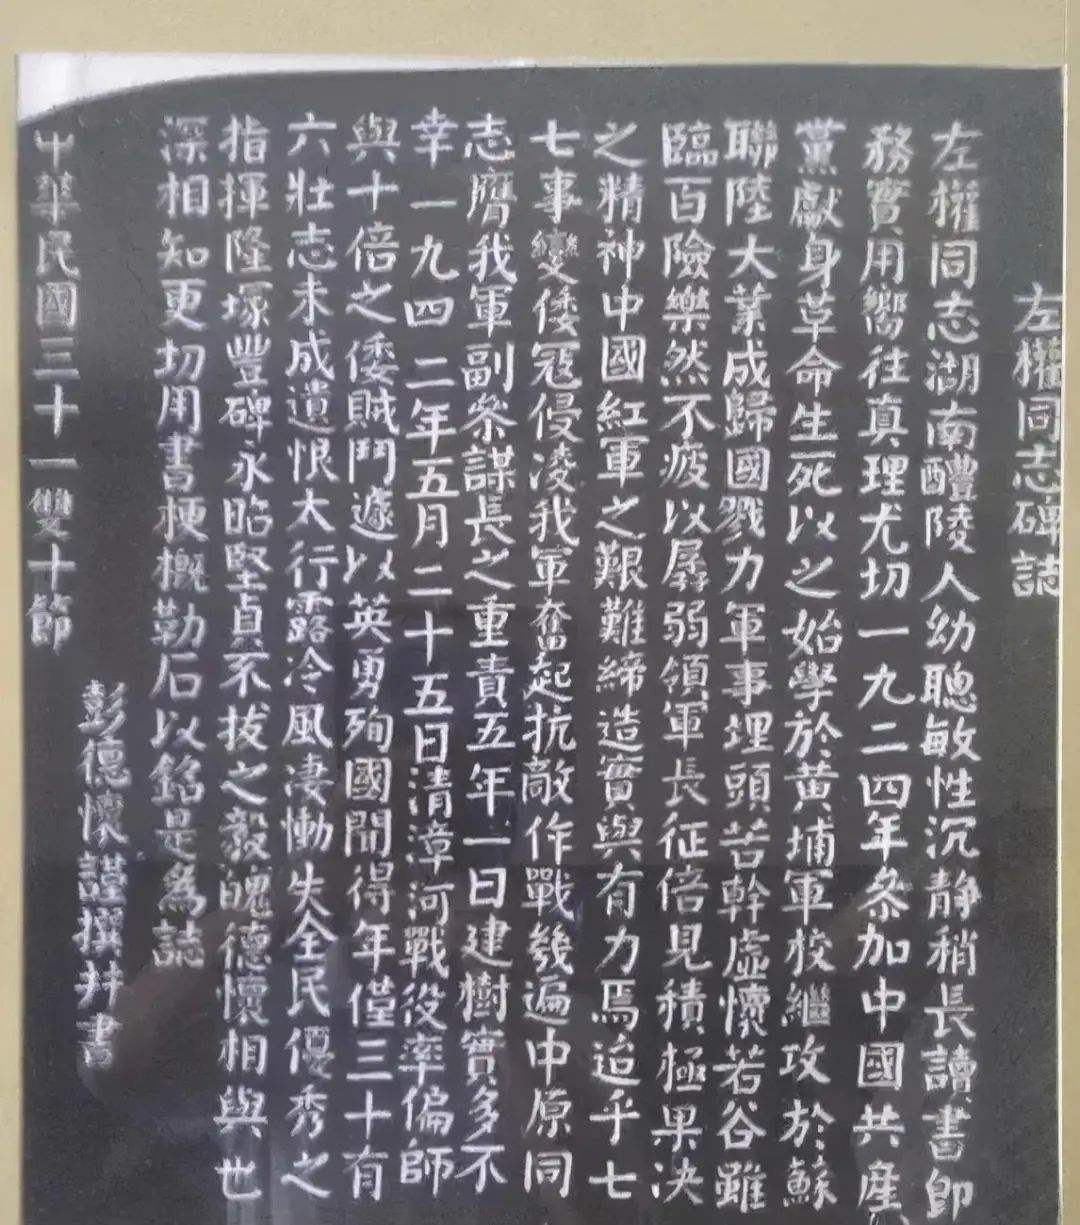 左權同志碑誌
左權同志湖南醴陵人幼聰敏性沉静稍長讀書卽
務實用嚮往真理尤切一九二四年參加中國共產
黨獻身革命生死以之始學於黄埔軍校繼攻於蘇
聯陸大業成歸國戮力軍事埋頭苦幹虛懷若谷雖
臨百險樂然不疲以孱弱領軍長征倍見積極果決
之精神中國紅軍之艱難締造實與有力焉迨乎七
七事變倭寇侵凌我軍奮起抗敵作戰幾遍中原同
志膺我軍副參謀長之重責五年一日建樹實多不
幸一九四二年五月二十五日清漳河戰役率偏師
與十倍之倭賊鬥遽以英勇殉國聞得年僅三十有
六壯志未成遺恨太行露冷風凄慟失全民優秀之
指揮隆塚豐碑永昭堅貞不拔之毅魄德懷相與也
深相知更切用書梗概勒石以銘是為誌
彭德懷謹撰并書
中華民國三十一雙十節